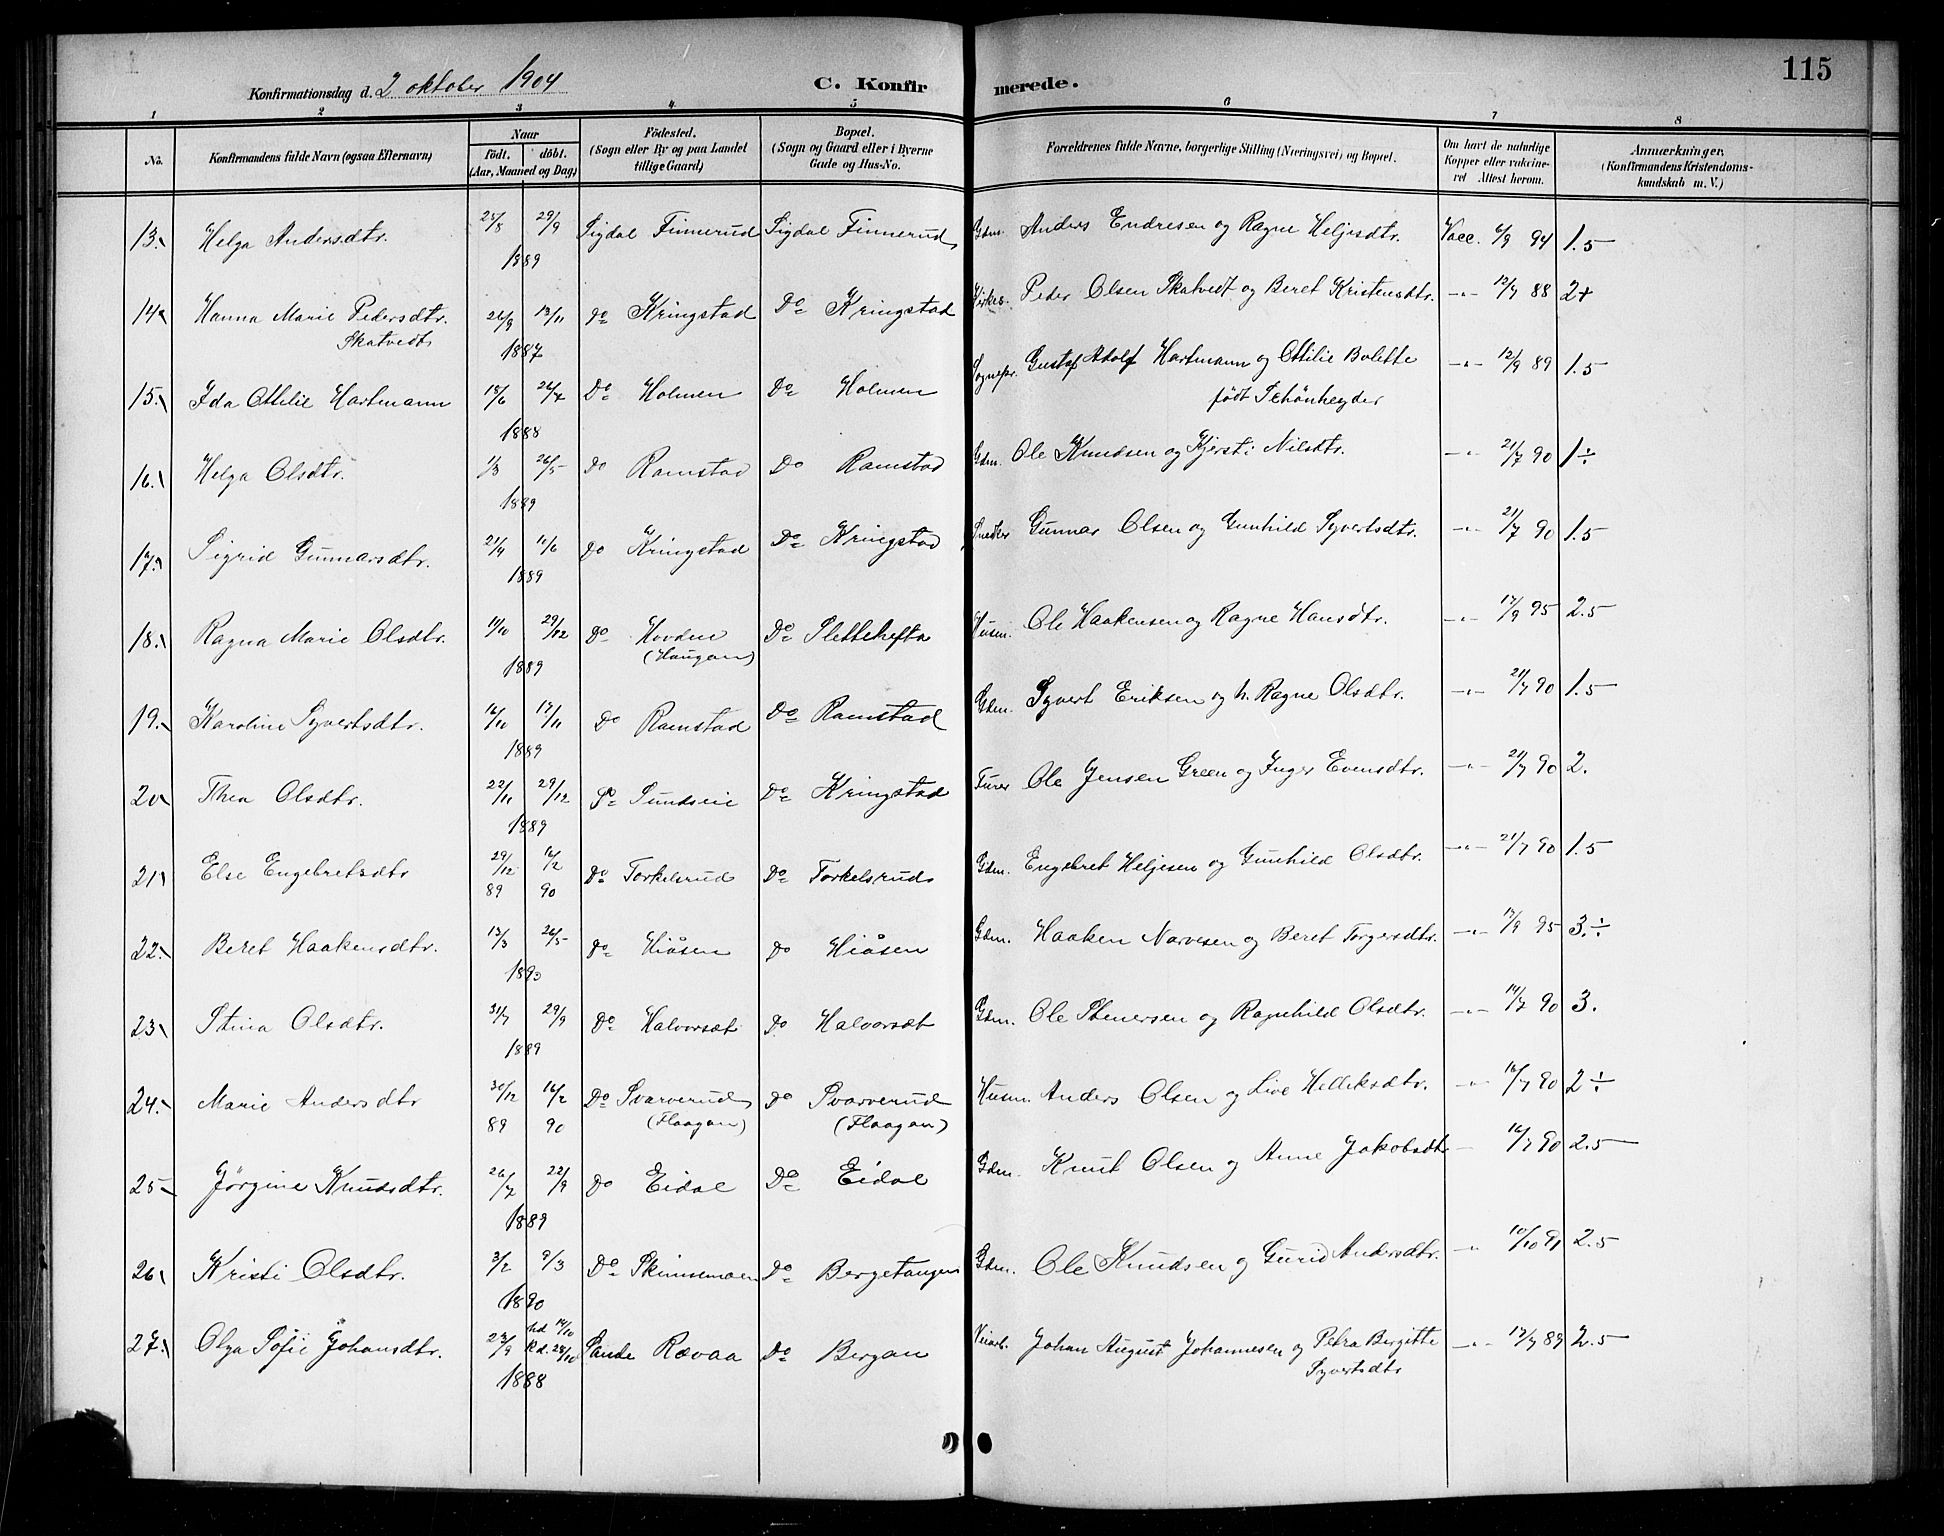 115
Konfirmationsdag d. 2 oktober 1904
C. Konfirmerede.
1 2 3 4 5 6 7 8
No. | Konfirmandens fulde Navn (ogsaa Efternavn) | Naar födt. döbt. (Aar, Maaned og Dag) | Födested. (Sogn eller By og paa Landet tillige Gaard) | Bopæl. (Sogn og Gaard eller i Byerne Gade og Hus-No. | Forældrenes fulde Navne, borgerlige Stilling (Næringsvei) og Bopæl. | Om havt de naturlige Kopper eller vakcineret Attest herom. | Anmærkninger, (Konfirmandens Kristendomskundskab m. V.)
13. Helga Andersdtr. 25/8 29/9 1889 Sigdal Finnerud Sigdal Finnerud Gdm. Anders Endresen og Ragne Heljesdtr. Vacc. 6/9 94 1.5
14. Hanna Marie Pedersdtr. Skatvedt 26/9 13/11 1887 Do Kringstad Do Kringstad Kirkes. Peder Olsen Skatvedt og Beret Kristensdtr. -"- 12/7 88 2+
15. Ida Ottilie Hartmann 18/6 26/7 1888 Do Holmen Do Holmen Sognepr. Gustaf Adolf Hartmann og Ottilie Bolette födt Schönheyder -"- 12/9 89 1.5
16. Helga Olsdtr. 1/3 26/5 1889 Do Ramstad Do Ramstad Gdm. Ole Knudsen og Kjersti Nilsdtr. -"- 21/7 90 1÷
17. Sigrid Gunnarsdtr. 21/4 16/6 1889 Do Kringstad Do Kringstad Snedker Gunnar Olsen og Gunhild Syvertsdtr. -"- 21/7 90 1.5
18. Ragna Marie Olsdtr. 14/10 29/12 1889 Do Hovden (Haugan) Do Slettehefta Husm. Ole Haakensen og Ragne Hansdtr. -"- 17/9 95 2.5
19. Karoline Syvertsdtr. 16/10 17/11 1889 Do Ramstad Do Ramstad Gdm. Syvert Eriksen og h. Ragne Olsdtr. -"- 21/7 90 1.5
20. Thea Olsdtr. 22/11 29/12 1889 Do Sundseie Do Kringstad Ole Jensen Green og Inger Evensdtr. -"- 21/7 90 2.
21. Else Engebretsdtr 29/12 89 16/2 90 Do Torkelsrud Do Torkelsrud Gdm. Engebret Heljesen og Gunhild Olsdtr. -"- 21/7 90 1.5
22. Beret Haakensdtr. 13/3 26/5 1890 Do Hiåsen Do Hiåsen Gdm. Haaken Narvesen og Beret Torgersdtr. -"- 17/9 95 3.÷
23. Stina Olsdtr. 31/7 29/9 1889 Do Halvorsæt Do Halvorsæt Gdm. Ole Stenersen og Ragnhild Olsdtr. -"- 14/7 90 3.
24. Marie Andersdtr 30/12 89 16/2 90 Do Svarverud (Flaagan) Do Svarverud (Flaagan) Husm. Anders Olsen og Live Helleksdtr. -"- 16/7 90 2÷
25. Jörgine Knudsdtr. 26/7 22/9 1889 Do Eidal Do Eidal Gdm. Knut Olsen og Anne Jakobsdtr - 16/7 90 2.5
26. Kristi Olsdtr. 3/2 9/3 1890 Do Skinsemoen Do Bergetangen Gdm. Ole Knudsen og Gurid Andersdtr. -"- 10/10 91 2.5
27. Olga Sofie Johansdtr. 23/9 hd 14/10 Kd. 28/10 1888 Sande Rævaa Do Bergan Veiarb. Johan August Johannesen og Petra Bergitte Syvertsdtr -"- 17/7 89 2.5